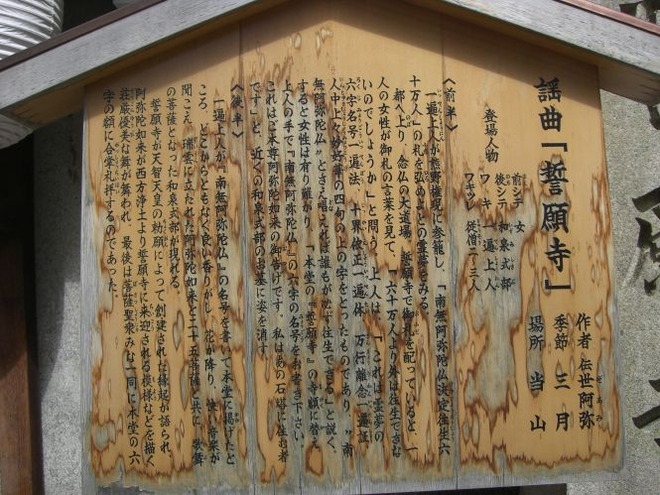 謡曲「誓願寺」
作者 伝世阿弥
季節 三月
場所 当山
登場人物
前シテ 女
後シテ 和泉式部
ワキ 一遍上人
ワキツレ 従僧二・三人
〈前半〉
一遍上人が熊野権現に参籠し、「南無阿弥陀仏決定往生六
十万人」の札を弘めよとの霊夢をみる。
都へ上り、念仏の大道場、誓願寺で御札を配っていると、一
人の女性が御札の言葉を見て、「六十万人より外は往生できな
いのでしょうか」と問う。上人は、「これは霊夢の
六字名号一遍法、十界依正一遍体、万行離念一遍証、
人中上々妙好華の四句の上の字をとったものであり、"南
無阿弥陀仏"とさえ唱えれば誰もが必ず往生できる」と説く。
すると女性は有り難がり、「本堂の『誓願寺』の寺額に替え、
上人の手で『南無阿弥陀仏』の六字の名号をお書き下さい。
これはご本尊阿弥陀如来の御告げです。私はあの石塔に住む者
です」と、近くの和泉式部のお墓に姿を消す。
〈後半〉
一遍上人が『南無阿弥陀仏』の名号を書いて本堂に掲げたと
ころ、どこからともなく良い香りがし、花が降り、快い音楽が
聞こえ、瑞雲に立たれた阿弥陀如来と二十五菩薩と共に、歌舞
の菩薩となった和泉式部が現れる。
誓願寺が天智天皇の勅願によって創建された縁起が語られ、
阿弥陀如来が西方浄土より誓願寺に来迎される模様などを描く
荘厳優美な舞が舞われ、最後は菩薩聖衆みな一同に本堂の六
字の額に合掌礼拝するのであった。